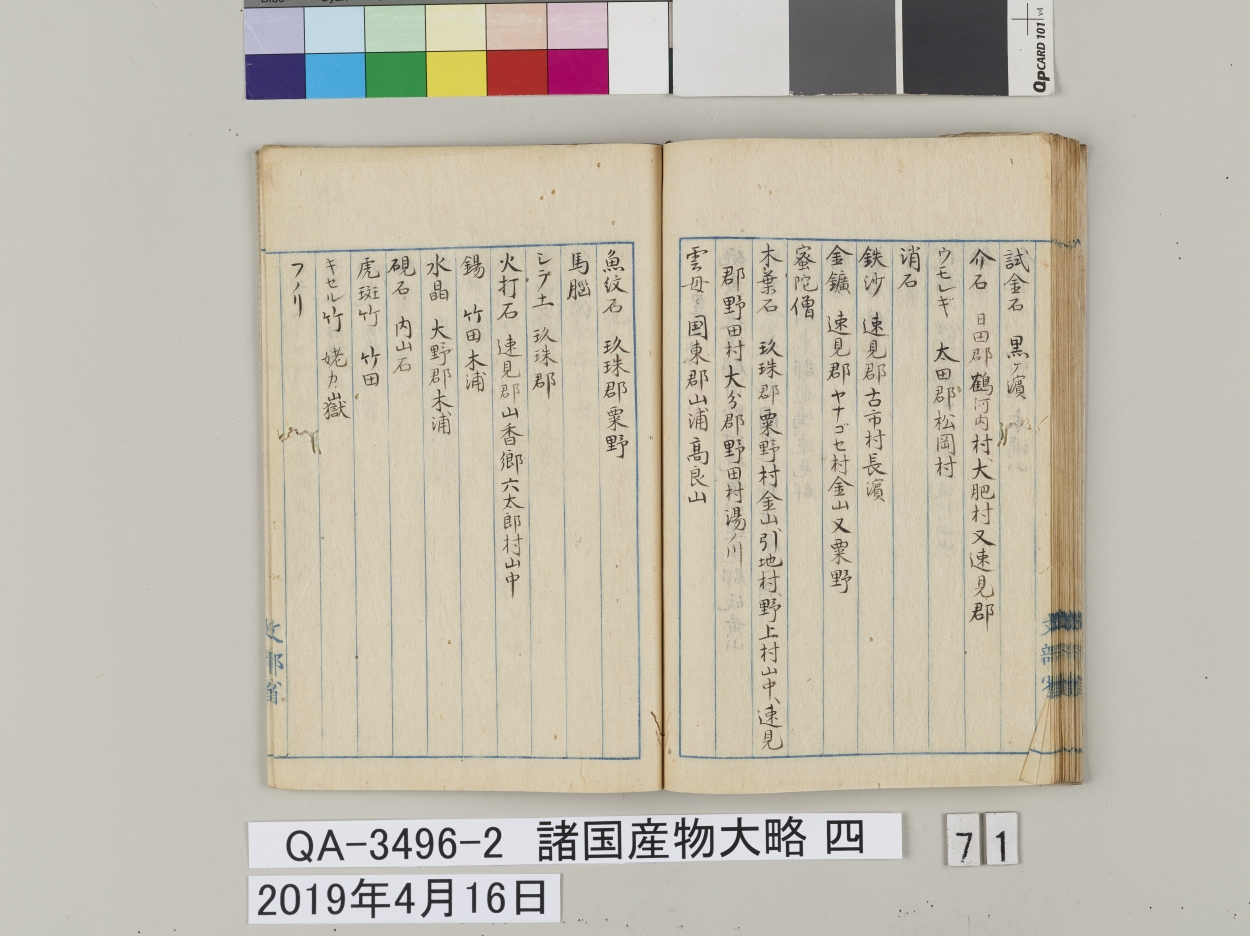 QpCARD 101
試金石 黒ケ濱
介石 日田郡鶴河内村、大肥村又速見郡
ウモレギ 太田郡松岡村
消石
鉄沙 速見郡古市村長濱
金鑛 速見郡ヤナゴセ村金山又粟野
蜜陀僧
木葉石 玖珠郡粟野村金山、引地村、野上村山中、速見
郡野田村大分郡野田村湯ノ川
雲母 国東郡山浦高良山
魚紋石 玖珠郡粟野
馬脳
シラ土 玖珠郡
火打石 速見郡山香郷六太郎村山中
錫 竹田木浦
水晶 大野郡木浦
硯石 内山石
虎斑竹 竹田
キセル竹 姥カ嶽
フノリ
文部省
QA-3496-2 諸国産物大略 四
71
2019年4月16日